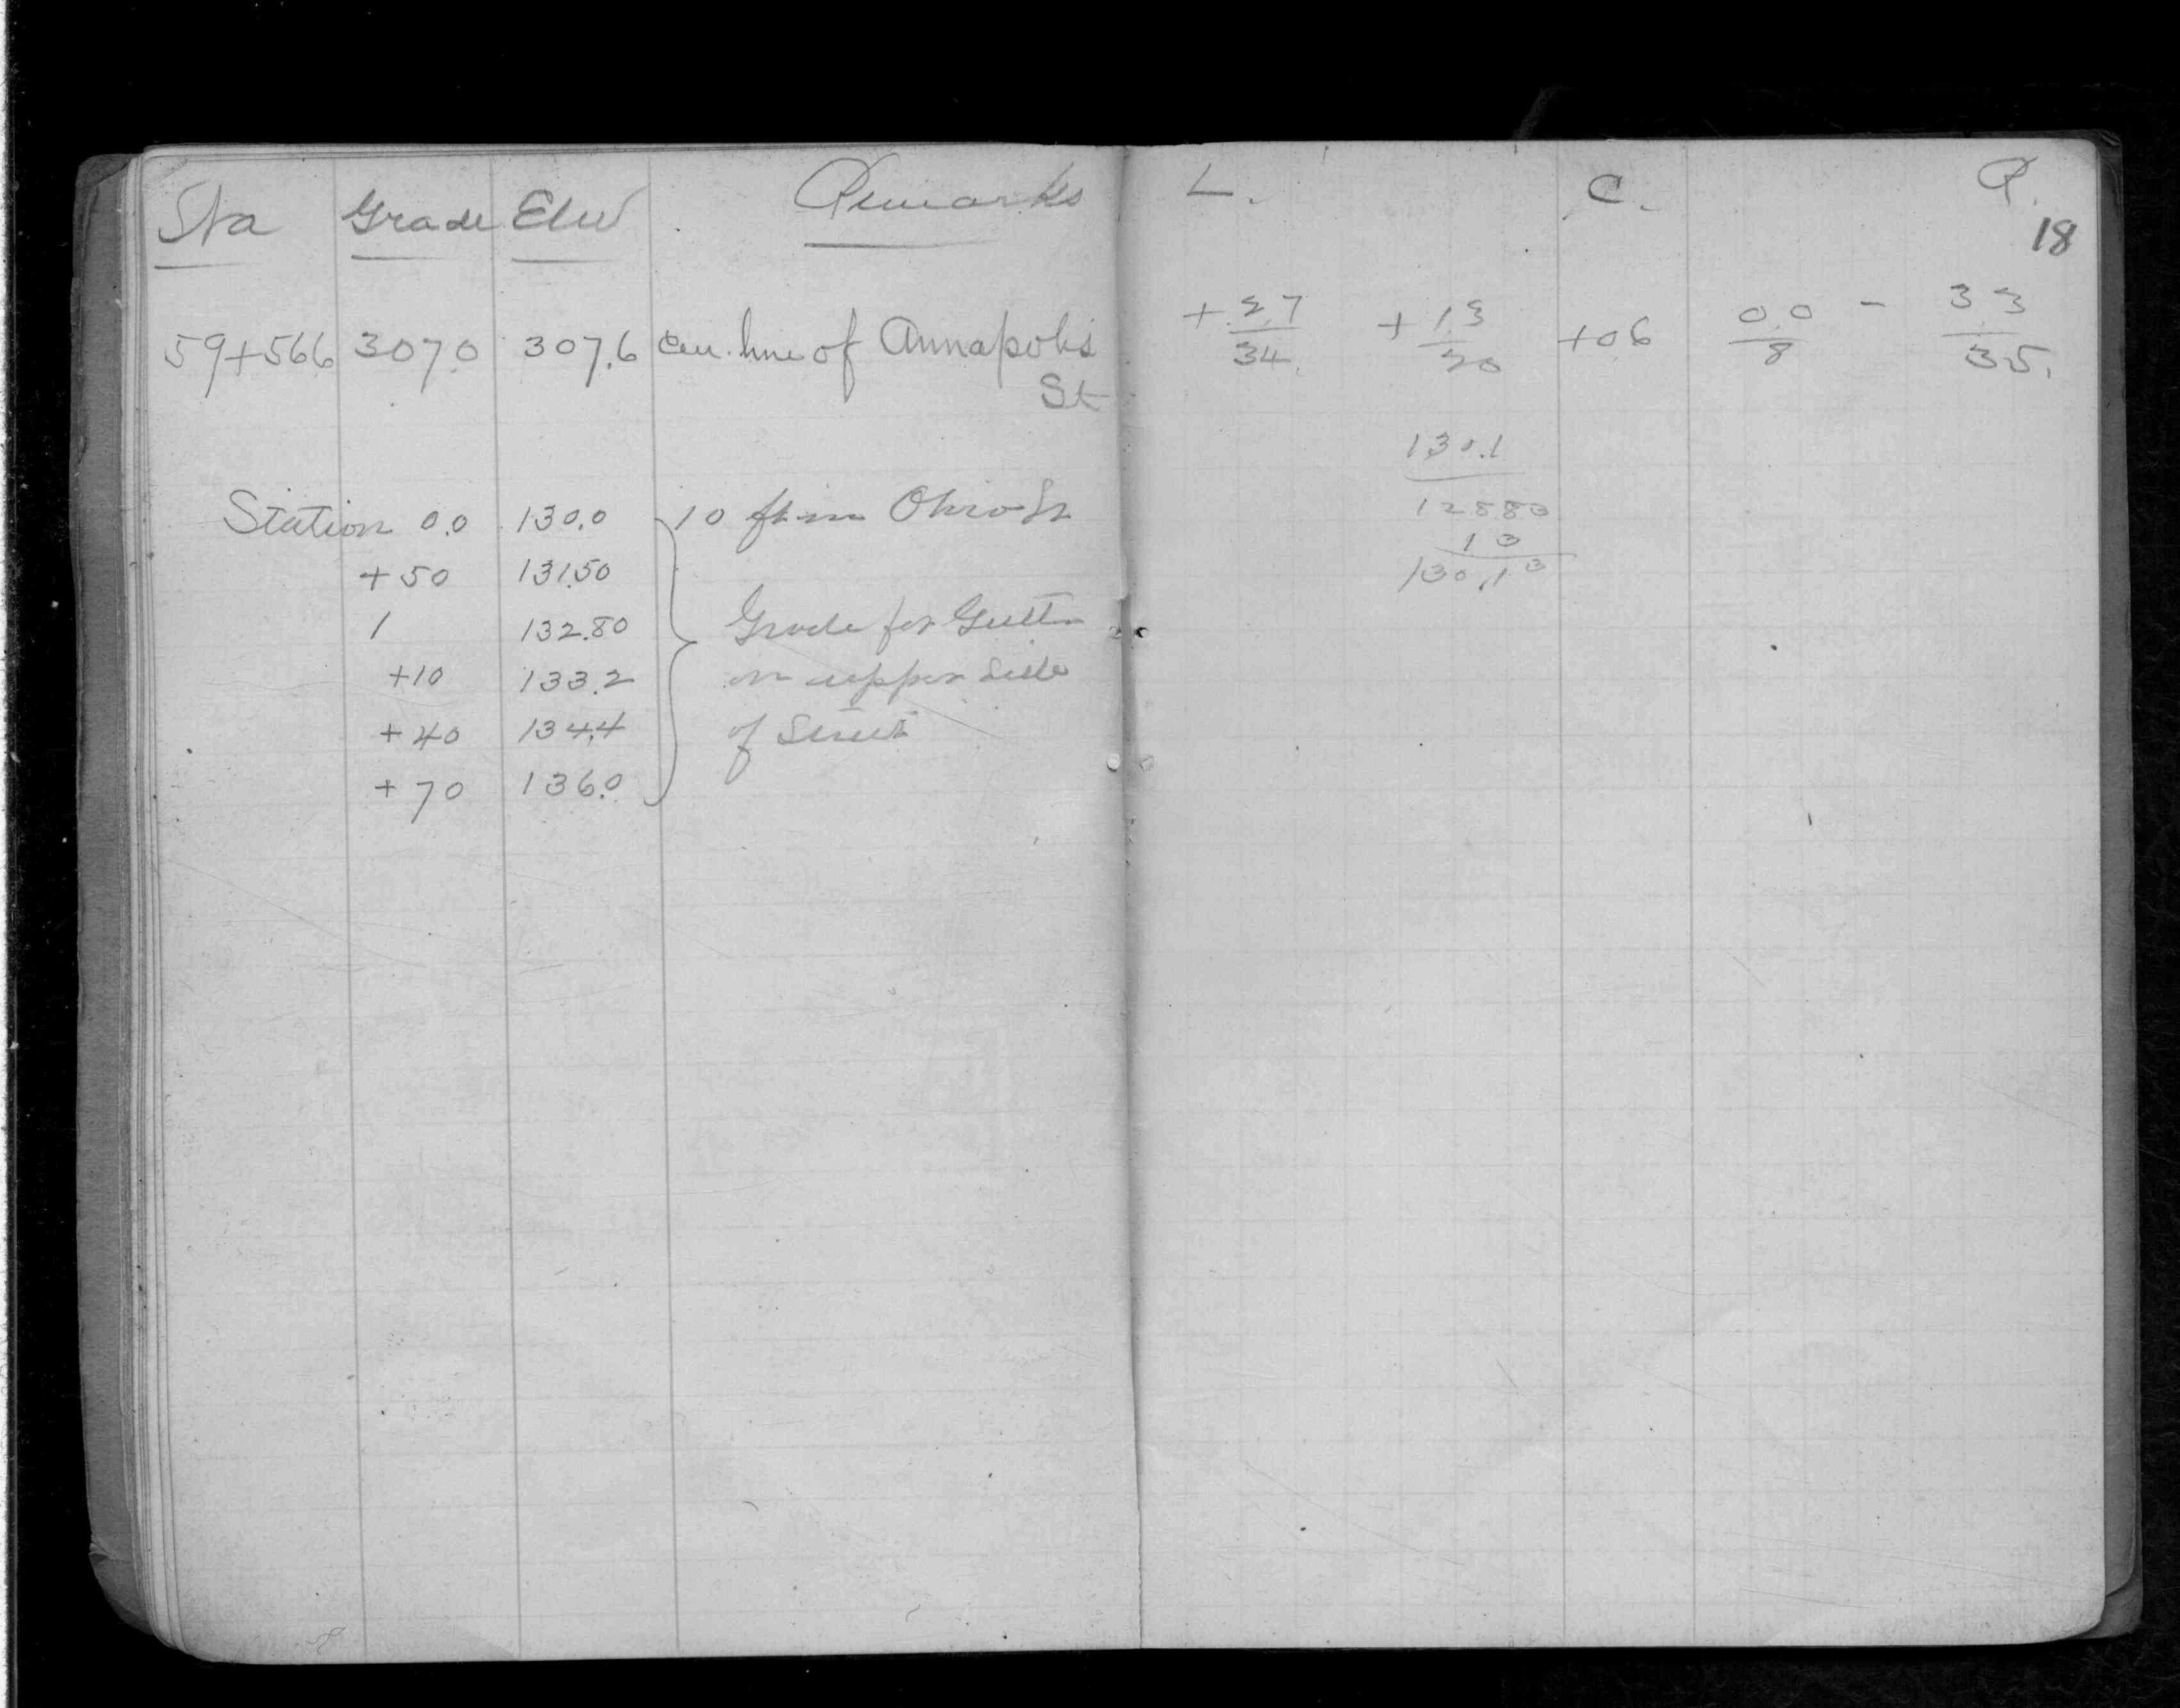 Sta Grade Elev Remarks
59+566 307.0 307.6 Cen. line of Annapolis
St
Station 0.0 130.0 10 ft in Ohio St
+50 131.50
1 132.80 Grade for Gutter
+10 133.2 on upper side
+40 134.4 of Street
+70 136.0
L. C. R.
18
+ 2.7 + 1.3 +0.6 0.0 - 3.3
34. 20 8 35.
130.1
128.83
1 3
130.13